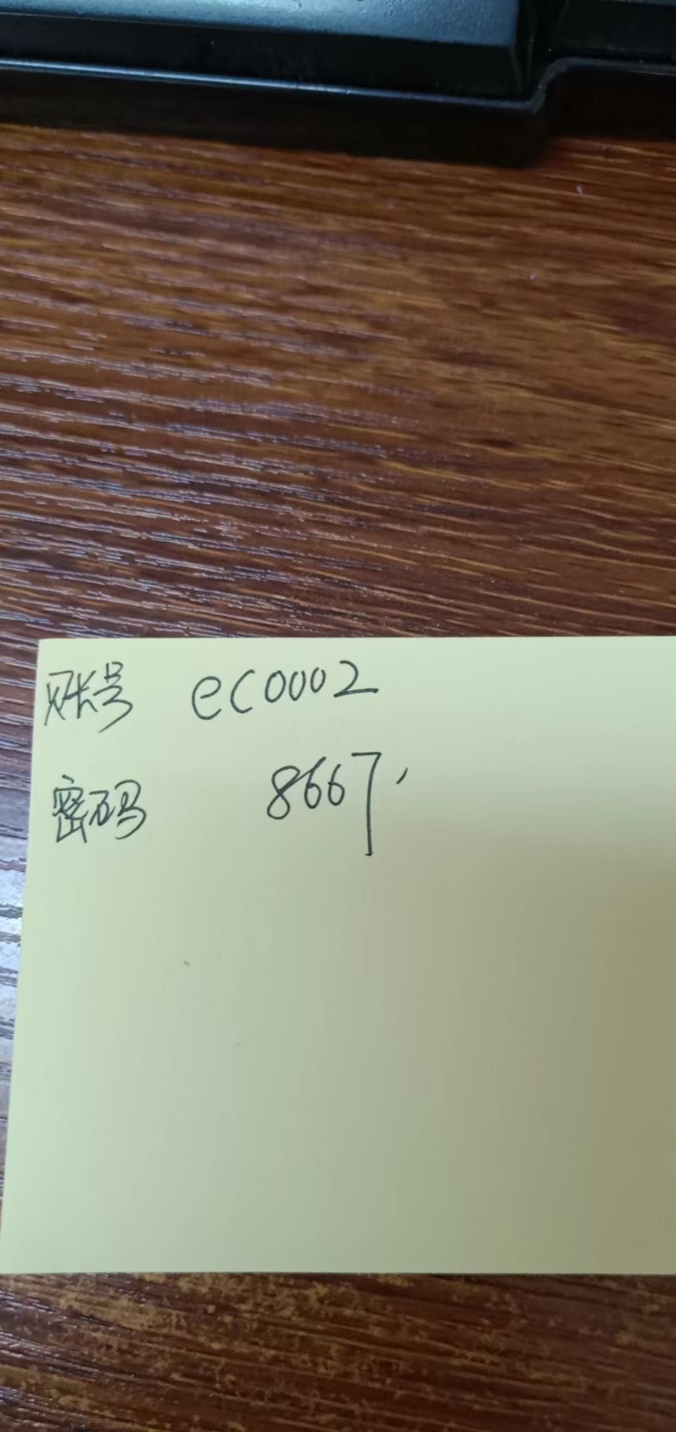 账号 ec0002
密码 8667,